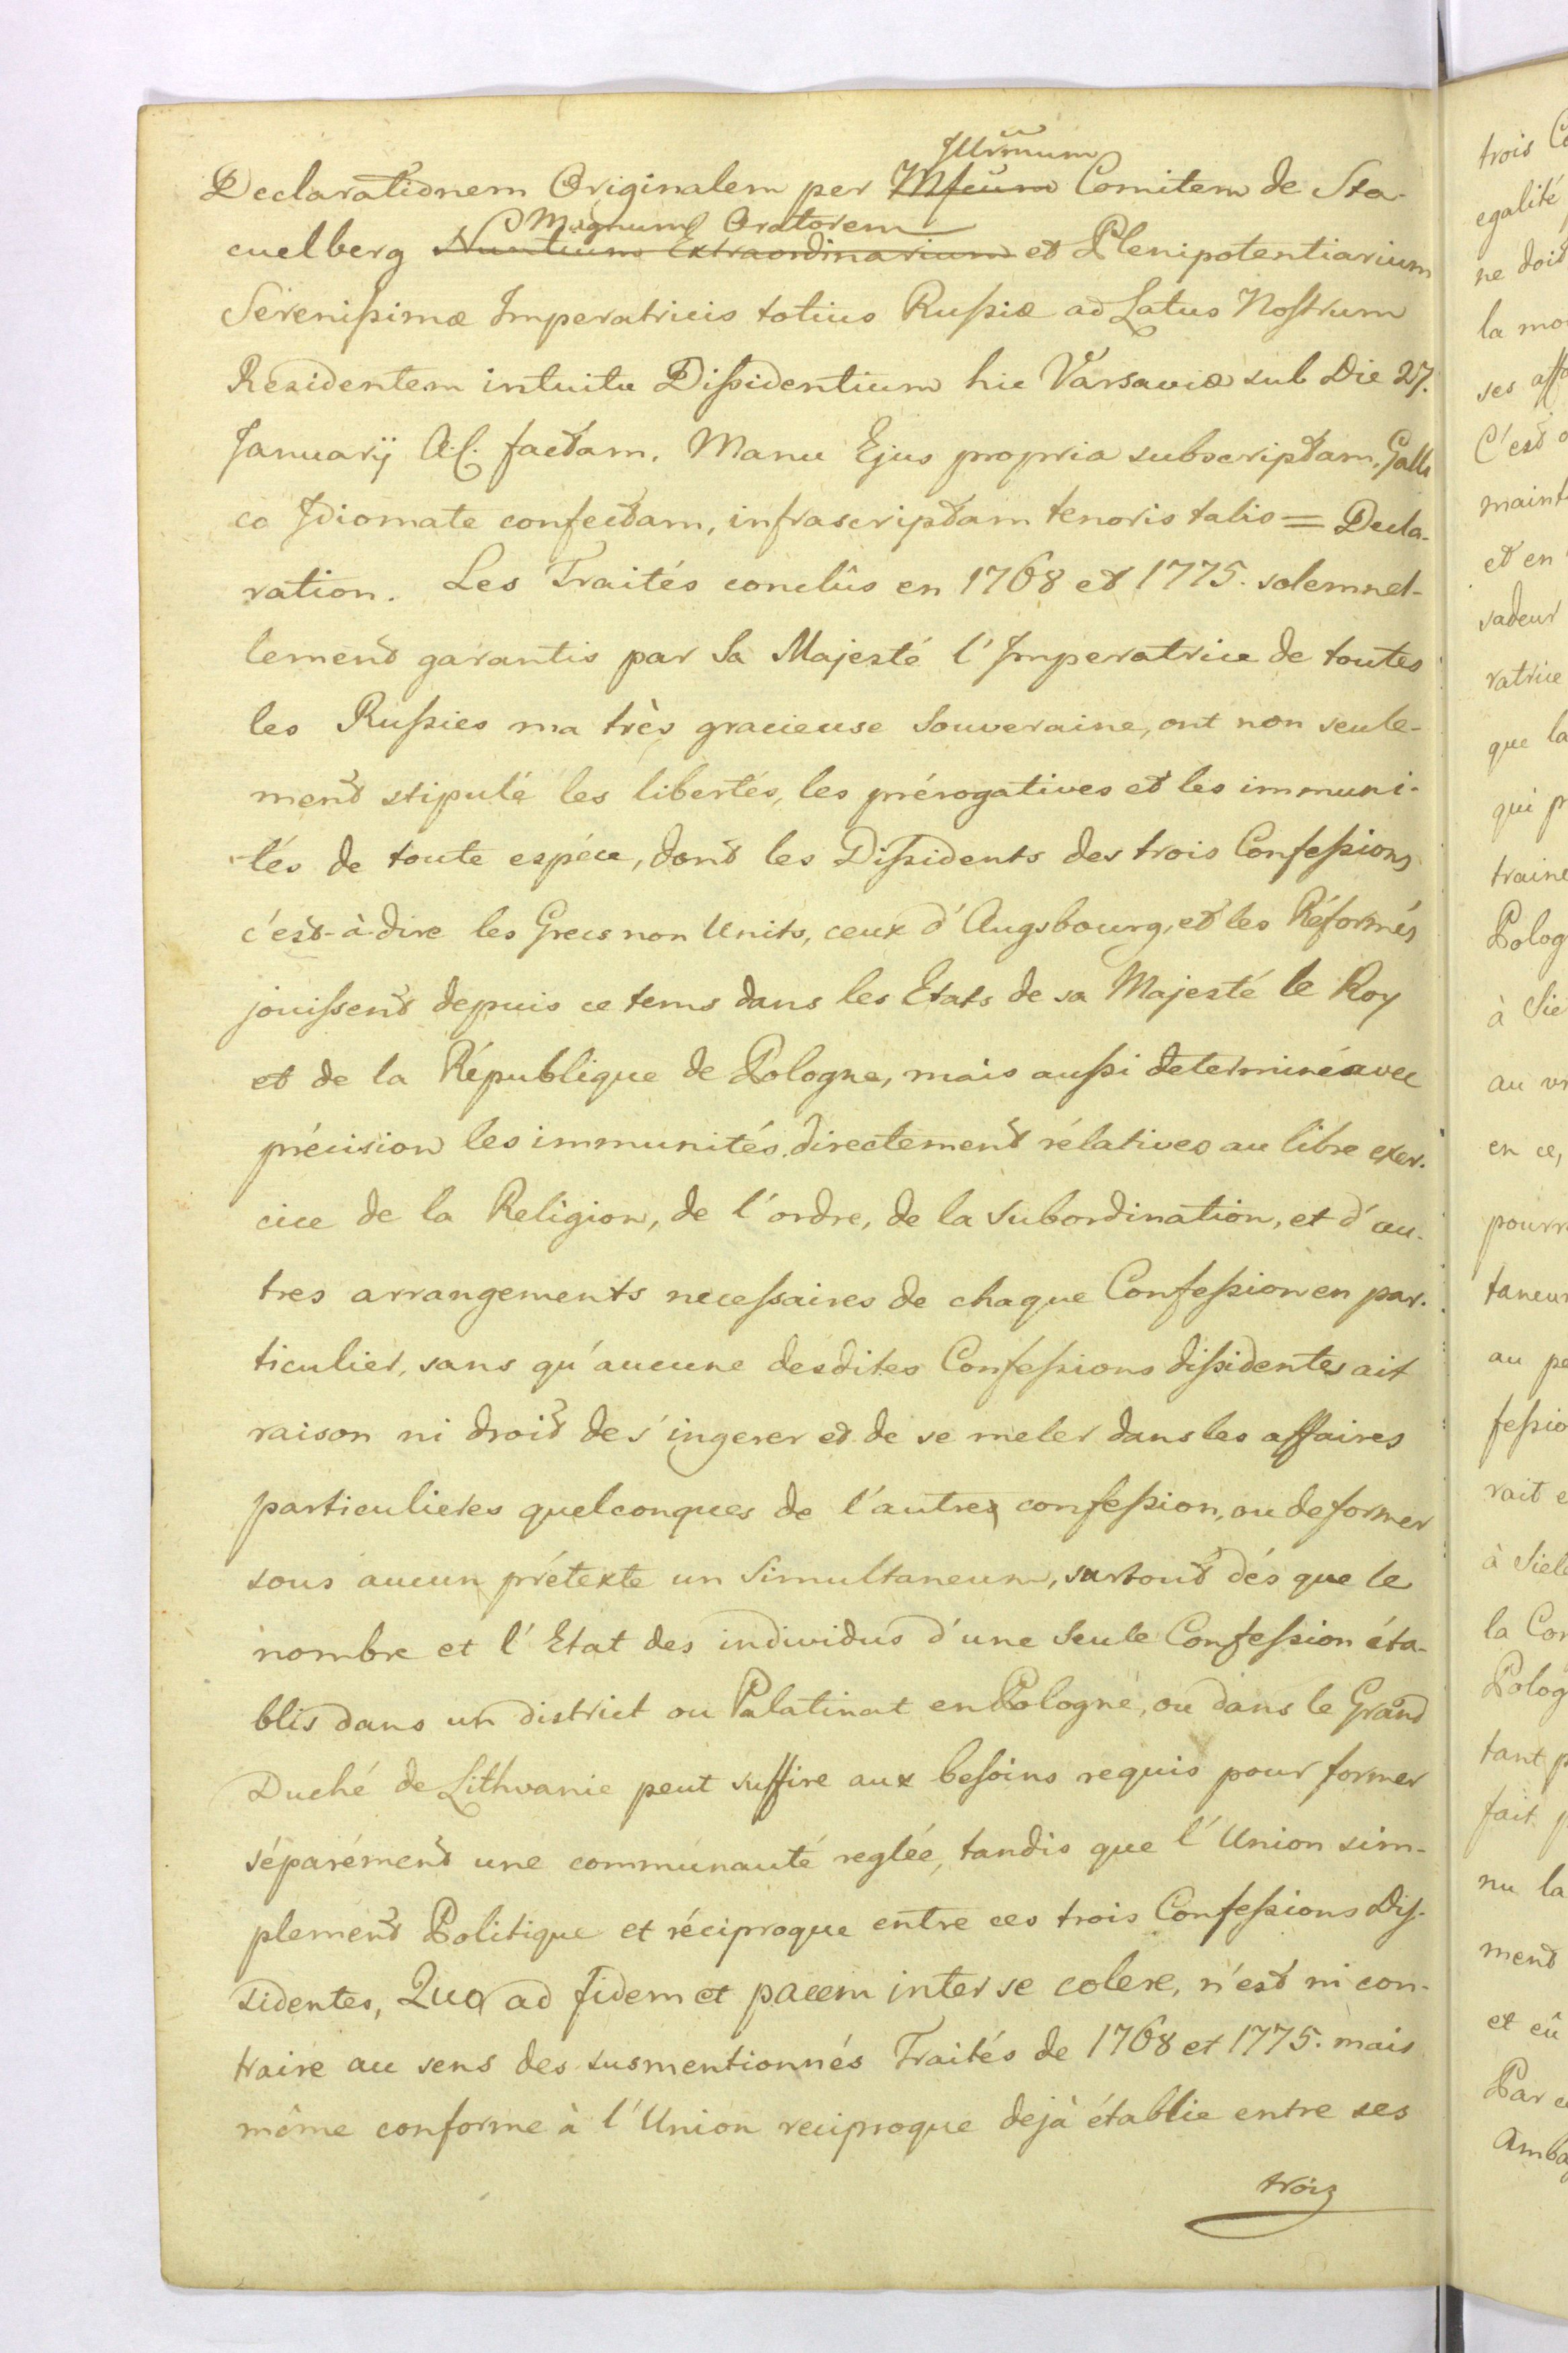 Declarationem Originalem per Mfcum Illr̃mum Comitem de Sta-
cuelberg Nuntium Extraordinarium Magnum Oratorem et Plenipotentiarium
Serenißimæ Imperatricis totius Rußiæ ad Latus Nostrum
Residentem intuitu Dißidentium hic Varsaviæ sub Die 27.
Januarij A.C. factam, Manu Ejus propria subscriptam, Galli
co Idiomate confectam, infrascriptam tenoris talis = Decla-
ration. Les Traités conclûs en 1768 et 1775. solemnel-
lement garantis par Sa Majesté l'Imperatrice de toutes
les Rußies ma très gracieuse Souveraine, ont non seule-
ment stipulé les libertés, les prérogatives et les immuni-
tés de toute espéce, dont les Dißidents des trois Confeßions
c'est-à-dire les Grecs non Units, ceux d'Augsbourg, et les Réformés
jouissent depuis ce tems dans les Etats de sa Majesté le Roy
et de la République de Pologne, mais außi determiné avec
précision les immunités directement rélatives au libre exer-
cice de la Religion, de l'ordre, de la subordination, et d'au-
tres arrangements necessaires de chaque Confeßion en par-
ticulier, sans qu'aucune desdites Confeßions dißidentes ait
raison ni droit de s'ingerer et de se meler dans les affaires
particulieres quelconques de l'autre confeßion, ou de former
sous aucun prétexte un Simultaneum, surtout dés que le
nombre et l'Etat des individus d'une seule Confeßion éta-
blis dans un district ou Palatinat en Pologne, ou dans le Grand
Duché de Lithvanie peut suffire aux besoins requis pour former
séparément une communauté reglée, tandis que l'Union sim-
plement Politique et réciproque entre ces trois Confeßions Dis-
sidentes, Quo ad fidem et pacem inter se colere, n'est ni con-
traire au sens des susmentionnés Traités de 1768 et 1775. mais
même conforme à l'Union reciproque dejà établie entre ses
trois
trois
egalité
ne doit
la
ses
C'est
et en
sadeur
ratrice
que la
qui
Polog
à
au
en ce,
au
feßio
rait
à
la Con
Polog
tant
fait
nu la
ment
et eû
Par
Amba